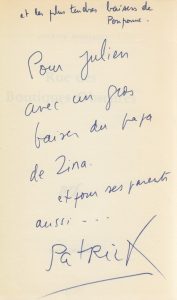 et les plus tendres baisers de
Pouponne.
Pour Julien
avec un gros
baiser du papa
de Zina.
et pour ses parents
aussi ---
Patrick